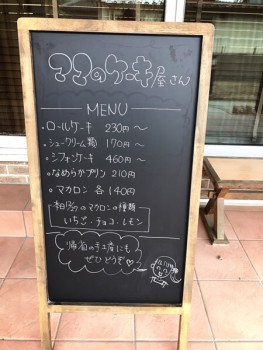 ママのケーキ屋さん
MENU
・ロールケーキ 230円〜
・シュークリーム(箱) 170円〜
・シフォンケーキ 460円〜
・なめらかプリン 210円
・マカロン 各140円
のマカロンの種類
いちご・チョコ・レモン
帰省の手土産にも
ぜひどうぞ